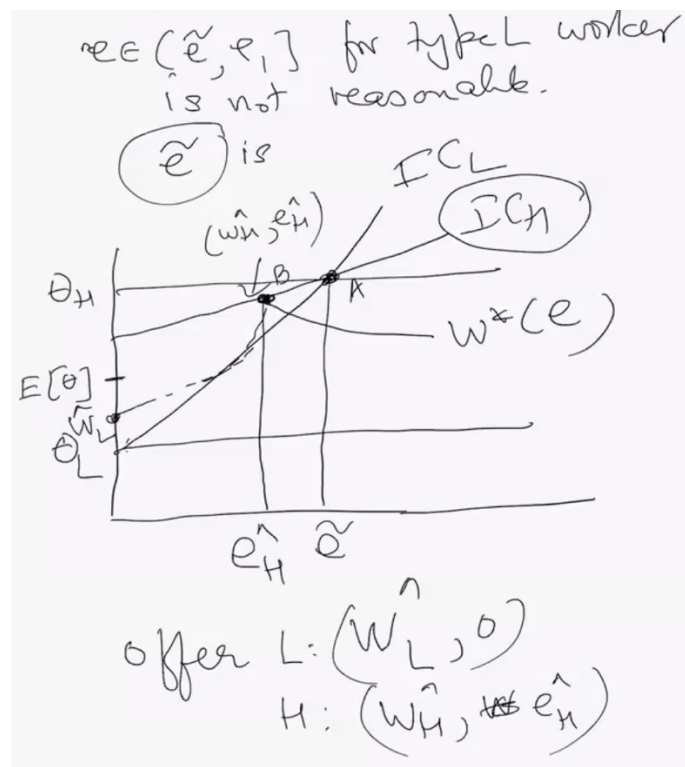 e∈(ẽ, e₁] for type L worker
is not reasonable.
ẽ is
IC_L
IC_H
(ŵ_H, ê_H)
B
θ_H
A
w*(e)
E[θ]
ŵ_L
θ_L
ê_H ẽ
offer L: (ŵ_L, 0)
H: (ŵ_H, ê_H)